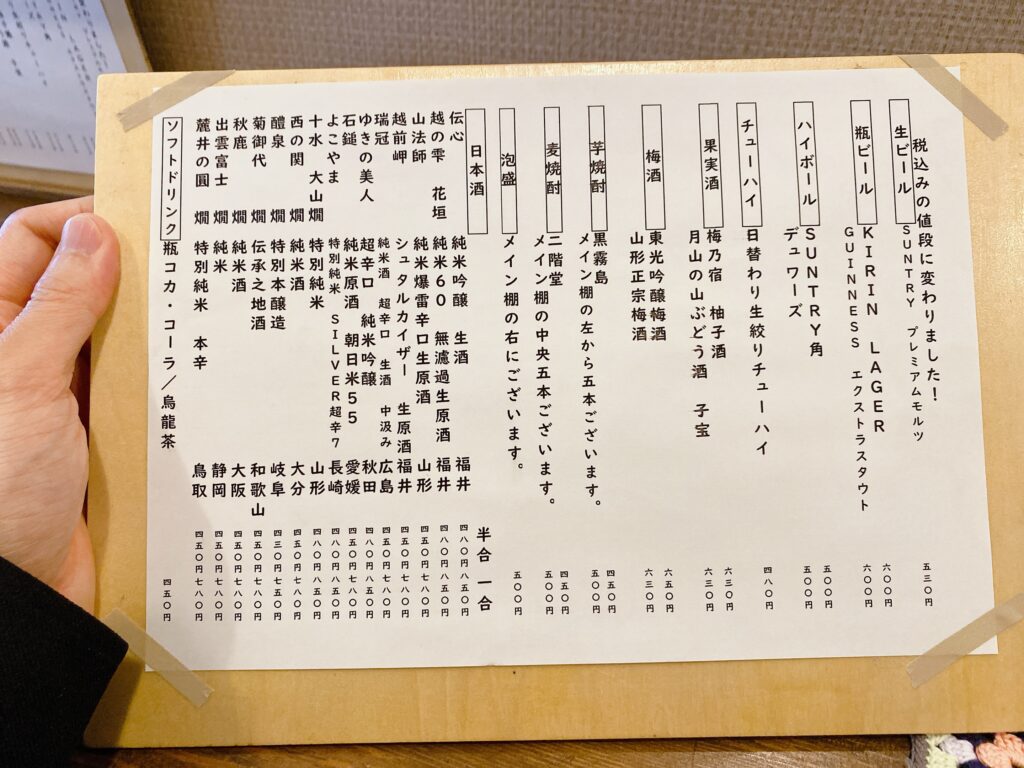 税込みの値段に変わりました！
生ビール SUNTRY プレミアムモルツ 五三〇円
瓶ビール KIRIN LAGER 六〇〇円
GUINNESS エクストラスタウト 六〇〇円
ハイボール SUNTRY角 五〇〇円
デュワーズ 五〇〇円
チューハイ 日替わり生絞りチューハイ 四八〇円
果実酒 梅乃宿 柚子酒 六三〇円
月山の山ぶどう酒 子宝 六三〇円
梅酒 東光吟醸梅酒 六五〇円
山形正宗梅酒 六三〇円
芋焼酎 黒霧島 四五〇円
メイン棚の左から五本ございます。 五〇〇円
麦焼酎 二階堂 四五〇円
メイン棚の中央五本ございます。 五〇〇円
泡盛 メイン棚の右にございます。 五〇〇円
日本酒 半合 一合
伝心 純米吟醸 生酒 福井 四八〇円 八五〇円
越の雫 花垣 純米60 無濾過生原酒 福井 四八〇円 八五〇円
山法師 純米爆雷辛口生原酒 山形 四五〇円 七八〇円
越前岬 シュタルカイザー 生原酒 福井 四五〇円 七八〇円
瑞冠 純米酒 超辛口 生酒 中汲み 広島 四五〇円 七八〇円
ゆきの美人 超辛口 純米吟醸 秋田 四八〇円 八五〇円
石鎚 純米原酒 朝日米55 愛媛 四五〇円 七八〇円
よこやま 特別純米 SILVER超辛7 長崎 四八〇円 八五〇円
十水 大山燗 特別純米 山形 四八〇円 八五〇円
西の関 燗 純米酒 大分 四五〇円 七八〇円
醴泉 燗 特別本醸造 岐阜 四三〇円 七五〇円
菊御代 燗 伝承之地酒 和歌山 四五〇円 七八〇円
秋鹿 燗 純米酒 大阪 四五〇円 七八〇円
出雲富士 燗 純米 静岡 四五〇円 七八〇円
麓井の圓 燗 特別純米 本辛 鳥取 四五〇円 七八〇円
ソフトドリンク 瓶コカ・コーラ／烏龍茶 四五〇円